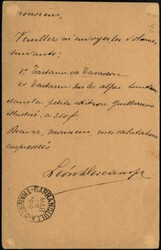 Monsieur,
Veuillez m'envoyer les volumes
suivants:
1º Tartarin de Tarascon
2º Tartarin sur les Alpes
dans la petite édition Guillaume
illustrée, à 3.50 f.
Monsieur, mes salutations
empressées
Léon Descamps